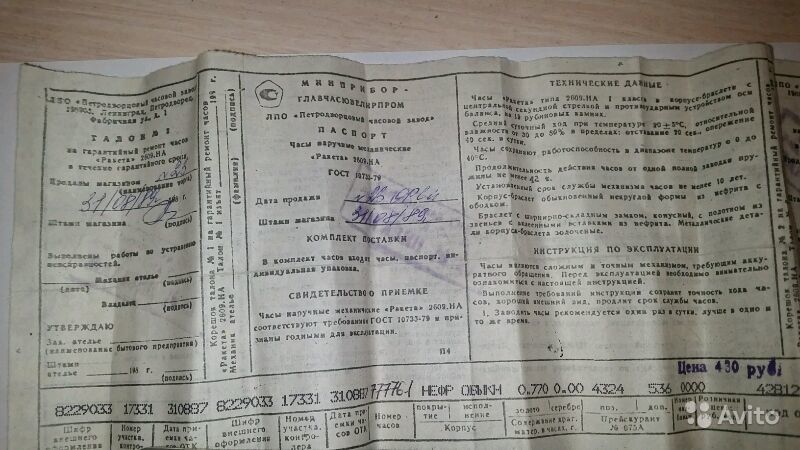 ЛПО «Петродворцовый часовой завод»
Ленинград, Петродворец,
Фабричная ул., д. 1
ТАЛОН № 1
на гарантийный ремонт часов
«Ракета» 2609.НА
в течение гарантийного срока
Проданы магазином
(наименование торга)
31/08/89 198 г.
Штамп магазина
(подпись)
Выполнены работы по устранению
неисправностей:
Механик ателье
(дата) (подпись)
Владелец
(подпись)
УТВЕРЖДАЮ
Зав. ателье
(наименование бытового предприятия)
Штамп
ателье 198 г.
(подпись)
Корешок талона № 1 на гарантийный ремонт часов
«Ракета» 2609.НА Талон № 1 изъят 198 г.
Механик ателье (фамилия) (подпись)
МИНПРИБОР
ГЛАВЧАСЮВЕЛИРПРОМ
ЛПО «Петродворцовый часовой завод»
ПАСПОРТ
Часы наручные механические
«Ракета» 2609.НА
ГОСТ 10733-79
Дата продажи
Штамп магазина 31/08/89
КОМПЛЕКТ ПОСТАВКИ
В комплект часов входят часы, паспорт, ин-
дивидуальная упаковка.
СВИДЕТЕЛЬСТВО О ПРИЕМКЕ
Часы наручные механические «Ракета» 2609.НА
соответствуют требованиям ГОСТ 10733-79 и при-
знаны годными для эксплуатации.
П4
ТЕХНИЧЕСКИЕ ДАННЫЕ
Часы «Ракета» типа 2609.НА 1 класса в корпусе-браслете с
центральной секундной стрелкой и противоударным устройством оси
баланса, на 19 рубиновых камнях.
Средний суточный ход при температуре 20±5°С, относительной
влажности от 30 до 80% в пределах: отставание 20 сек., опережение
40 сек. в сутки.
Часы сохраняют работоспособность в диапазоне температур от 0 до
40°С.
Продолжительность действия часов от одной полной заводки пру-
жины не менее 42 ч.
Установленный срок службы механизма часов не менее 10 лет.
Корпус-браслет обыкновенный некруглой формы из нефрита с
ободком.
Браслет с шарнирно-складным замком, конусный, с полотном из
звеньев с вклеенными вставками из нефрита. Металлические дета-
ли корпуса-браслета золоченые.
ИНСТРУКЦИЯ ПО ЭКСПЛУАТАЦИИ
Часы являются сложным и точным механизмом, требующим акку-
ратного обращения. Перед эксплуатацией необходимо внимательно
ознакомиться с настоящей инструкцией.
Выполнение требований инструкции сохранит точность хода
часов, хороший внешний вид, продлит срок службы часов.
1. Заводить часы рекомендуется один раз в сутки, лучше в одно и
то же время.
Корешок талона № 2 на гарантийный ремонт часов
«Ракета» 2609.НА
Цена 430 руб.
8229033 17331 310887 8229033 17331 310887 НЕФР ОБЫКН 0.770 0.00 4324 536 0000 42812
Шифр внешнего оформления
Номер участка,
Дата при-
Шифр внешнего оформления
Номер участка, контро-
лера
Дата при-
емки ча-
сов ОТК
Номер часов
покры-
тие
испол-
нение
Корпус
золото серебро
Содержание драг.
матер. в часах, г.
поз. доп.
Прейскурант
№ 075А
Avito